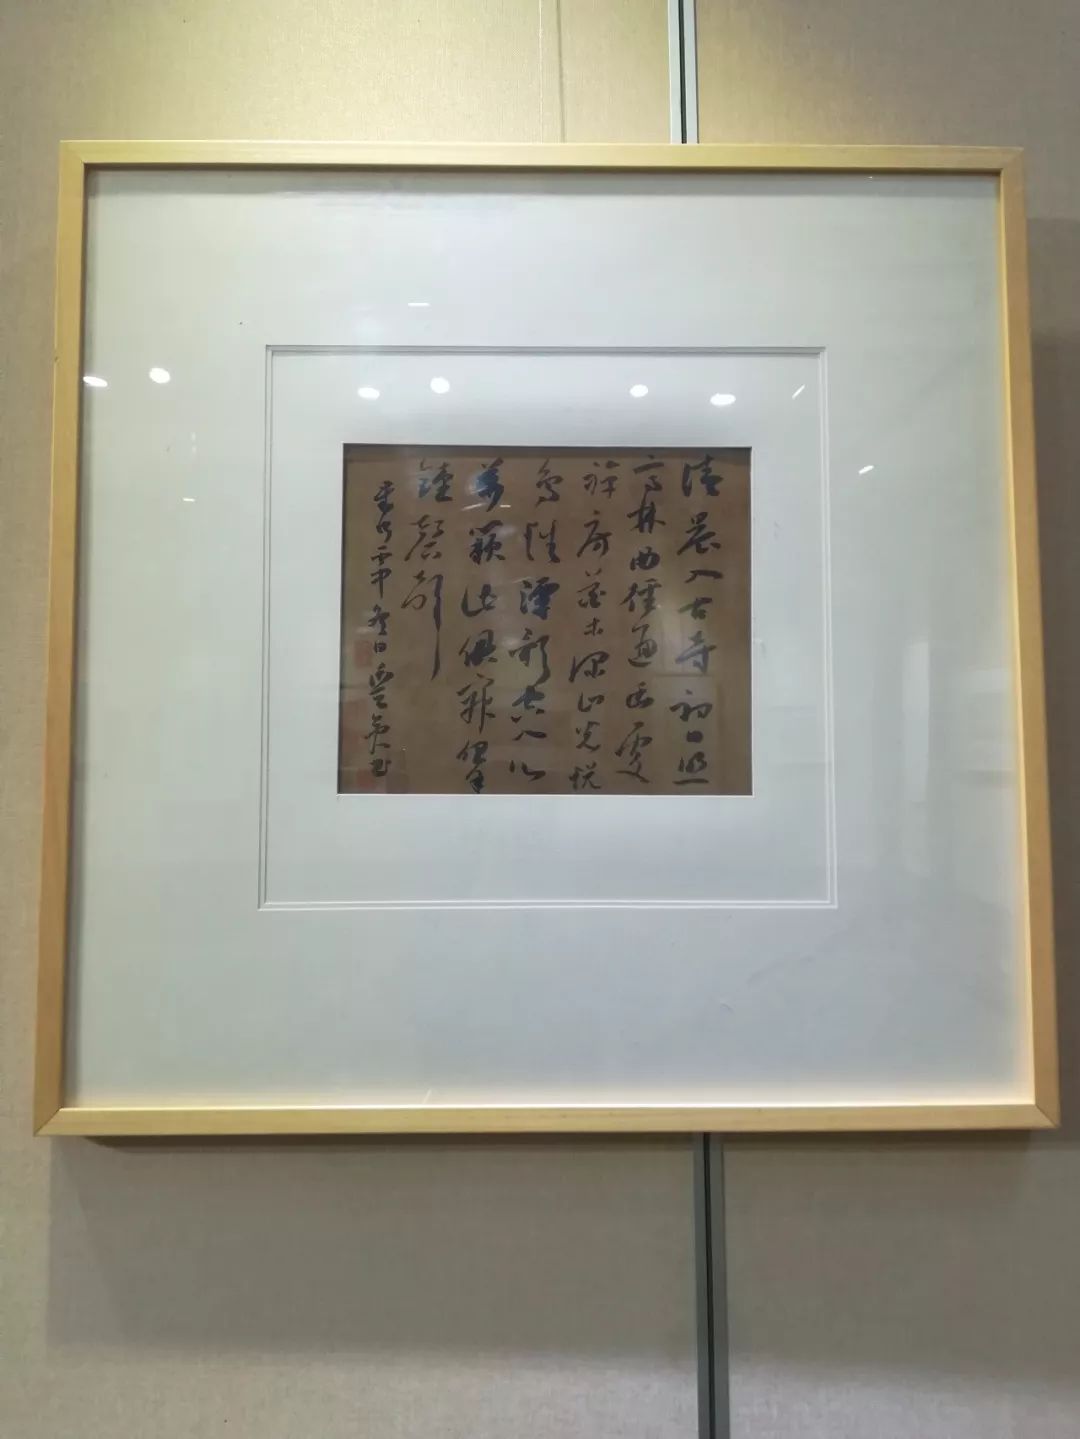 清晨入古寺初日照
高林曲徑通幽處
禪房花木深山光悅
鳥性潭影空人心
萬籟此俱寂
鐘磬聲
冬日